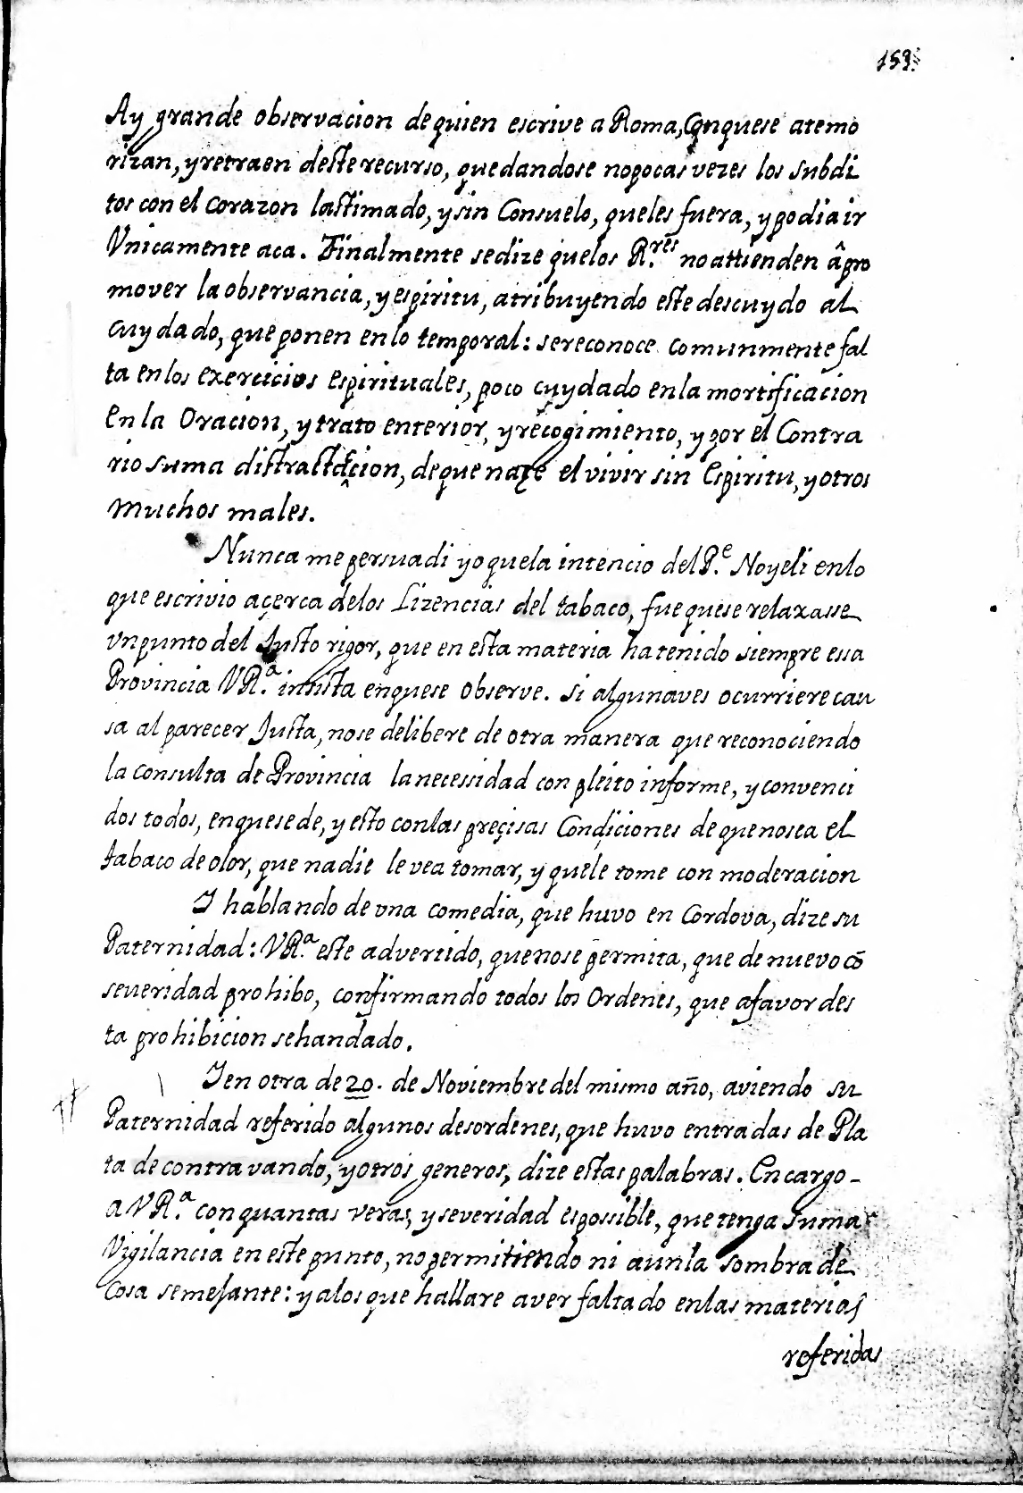 159.
Ay grande observacion de quien escrive a Roma, Conquese atemo
rizan, y retraen deste recurso, quedandose no pocas vezes los subdi
tos con el corazon lastimado, y sin Consuelo, que les fuera, y podia ir
Vnicamente aca. Finalmente se dize que los R.res no attienden â pro
mover la observancia, y espiritu, atribuyendo este descuydo al
cuydado, que ponen en lo temporal: se reconoce comunmente fal
ta en los exercicios espirituales, poco cuydado en la mortificacion
En la Oracion, y trato enterior, y recogimiento, y por el Contra
rio suma distraccion, de que naçe el vivir sin Espiritu, y otros
muchos males.
Nunca me persuadi yo que la intencio del P.e Noyeli en lo
que escrivio açerca de los Lizencias del tabaco, fue que se relaxasse
vn punto del Justo rigor, que en esta materia ha tenido siempre essa
Provincia V R.a insista en que se observe. Si alguna ves ocurriere cau
sa al parecer Justa, no se delibere de otra manera que reconociendo
la consulta de Provincia la necessidad con pleito informe, y convenci
dos todos, en que se de, y esto con las preçisas Condiciones de que no sea el
tabaco de olor, que nadie le vea tomar, y que le tome con moderacion
I hablando de vna comedia, que huvo en Cordova, dize su
Paternidad: V R.a este advertido, que no se permita, que de nuevo cõ
severidad prohibo, confirmando todos los Ordenes, que a favor des
ta prohibicion se han dado.
I en otra de 20. de Noviembre del mismo año, aviendo su
Paternidad referido algunos desordenes, que huvo entradas de Pla
ta de contravando, y otros generos, dize estas palabras. Encargo
a V R.a con quantas veras, y severidad es possible, que tenga suma
Vigilancia en este punto, no permitiendo ni aun la sombra de
Cosa semejante: y a los que hallare aver faltado en las materias
referidas